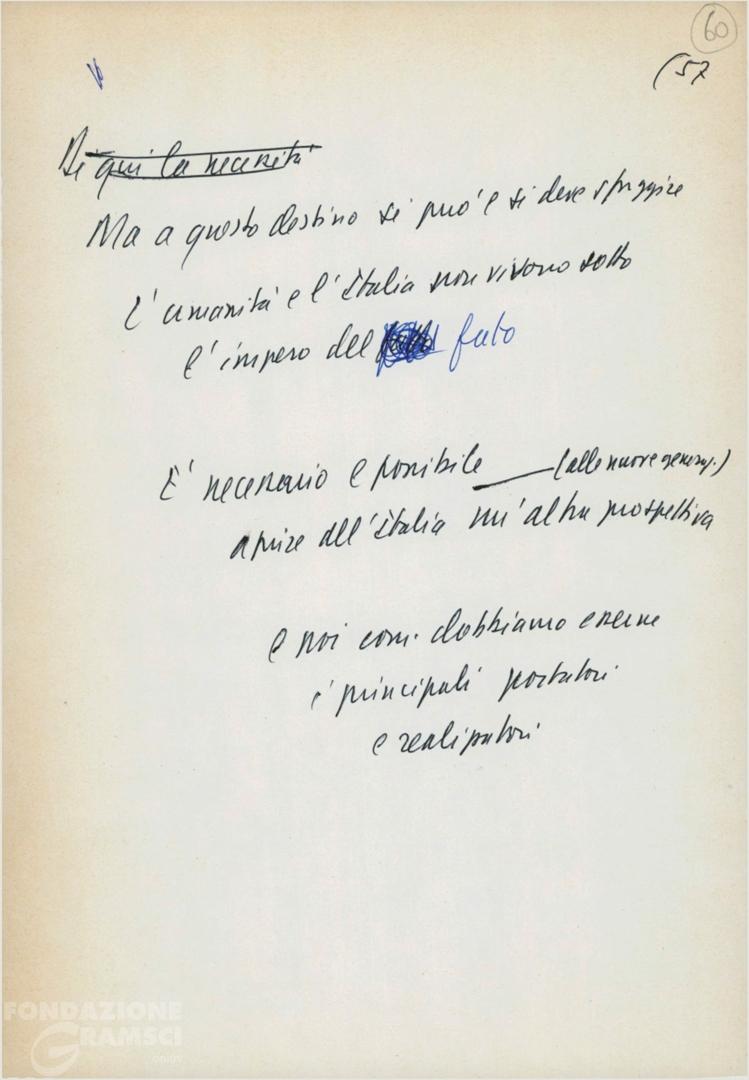 60
(57
Di qui la necessità
Ma a questo destino si può e si deve sfuggire
L'umanità e l'Italia non vivono sotto
l'impero del fato
E' necessario e possibile (alle nuove generaz.)
aprire all'Italia un'altra prospettiva
e noi com. dobbiamo esserne
i principali portatori
e realizzatori
FONDAZIONE
GRAMSCI
onlus